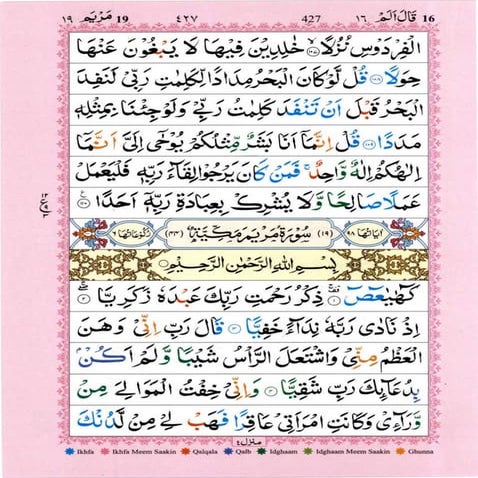 ١٩ مَرْيَم 19 ٤٢٧ 427 قَالَ اَلَمْ ١٦ 16
الْفِرْدَوْسِ نُزُلًا ۙ﴿۱۰۷﴾ خٰلِدِيْنَ فِيْهَا لَا يَبْغُوْنَ عَنْهَا
حِوَلًا ﴿۱۰۸﴾ قُلْ لَّوْ كَانَ الْبَحْرُ مِدَادًا لِّكَلِمٰتِ رَبِّيْ لَنَفِدَ
الْبَحْرُ قَبْلَ اَنْ تَنْفَدَ كَلِمٰتُ رَبِّيْ وَلَوْ جِئْنَا بِمِثْلِهٖ
مَدَدًا ﴿۱۰۹﴾ قُلْ اِنَّمَاۤ اَنَا بَشَرٌ مِّثْلُكُمْ يُوْحٰۤى اِلَيَّ اَنَّمَاۤ
اِلٰهُكُمْ اِلٰهٌ وَّاحِدٌ ۚ فَمَنْ كَانَ يَرْجُوْا لِقَآءَ رَبِّهٖ فَلْيَعْمَلْ
عَمَلًا صَالِحًا وَّلَا يُشْرِكْ بِعِبَادَةِ رَبِّهٖۤ اَحَدًا ﴿۱۱۰﴾
اٰيَاتُهَا ٩٨ (١٩) سُوْرَةُ مَرْيَمَ مَكِّيَّةٌ (٤٤) رُكُوْعَاتُهَا ٦
بِسْمِ اللهِ الرَّحْمٰنِ الرَّحِيْمِ
كٓهٰيٰعٓصٓ ﴿۱﴾ ذِكْرُ رَحْمَتِ رَبِّكَ عَبْدَهٗ زَكَرِيَّا ﴿۲﴾
اِذْ نَادٰى رَبَّهٗ نِدَآءً خَفِيًّا ﴿۳﴾ قَالَ رَبِّ اِنِّيْ وَهَنَ
الْعَظْمُ مِنِّيْ وَاشْتَعَلَ الرَّاْسُ شَيْبًا وَّلَمْ اَكُنْۢ
بِدُعَآئِكَ رَبِّ شَقِيًّا ﴿۴﴾ وَاِنِّيْ خِفْتُ الْمَوَالِيَ مِنْ
وَّرَآءِيْ وَكَانَتِ امْرَاَتِيْ عَاقِرًا فَهَبْ لِيْ مِنْ لَّدُنْكَ
منزل ٤
Ikhfa Ikhfa Meem Saakin Qalqala Qalb Idghaam Idghaam Meem Saakin Ghunna